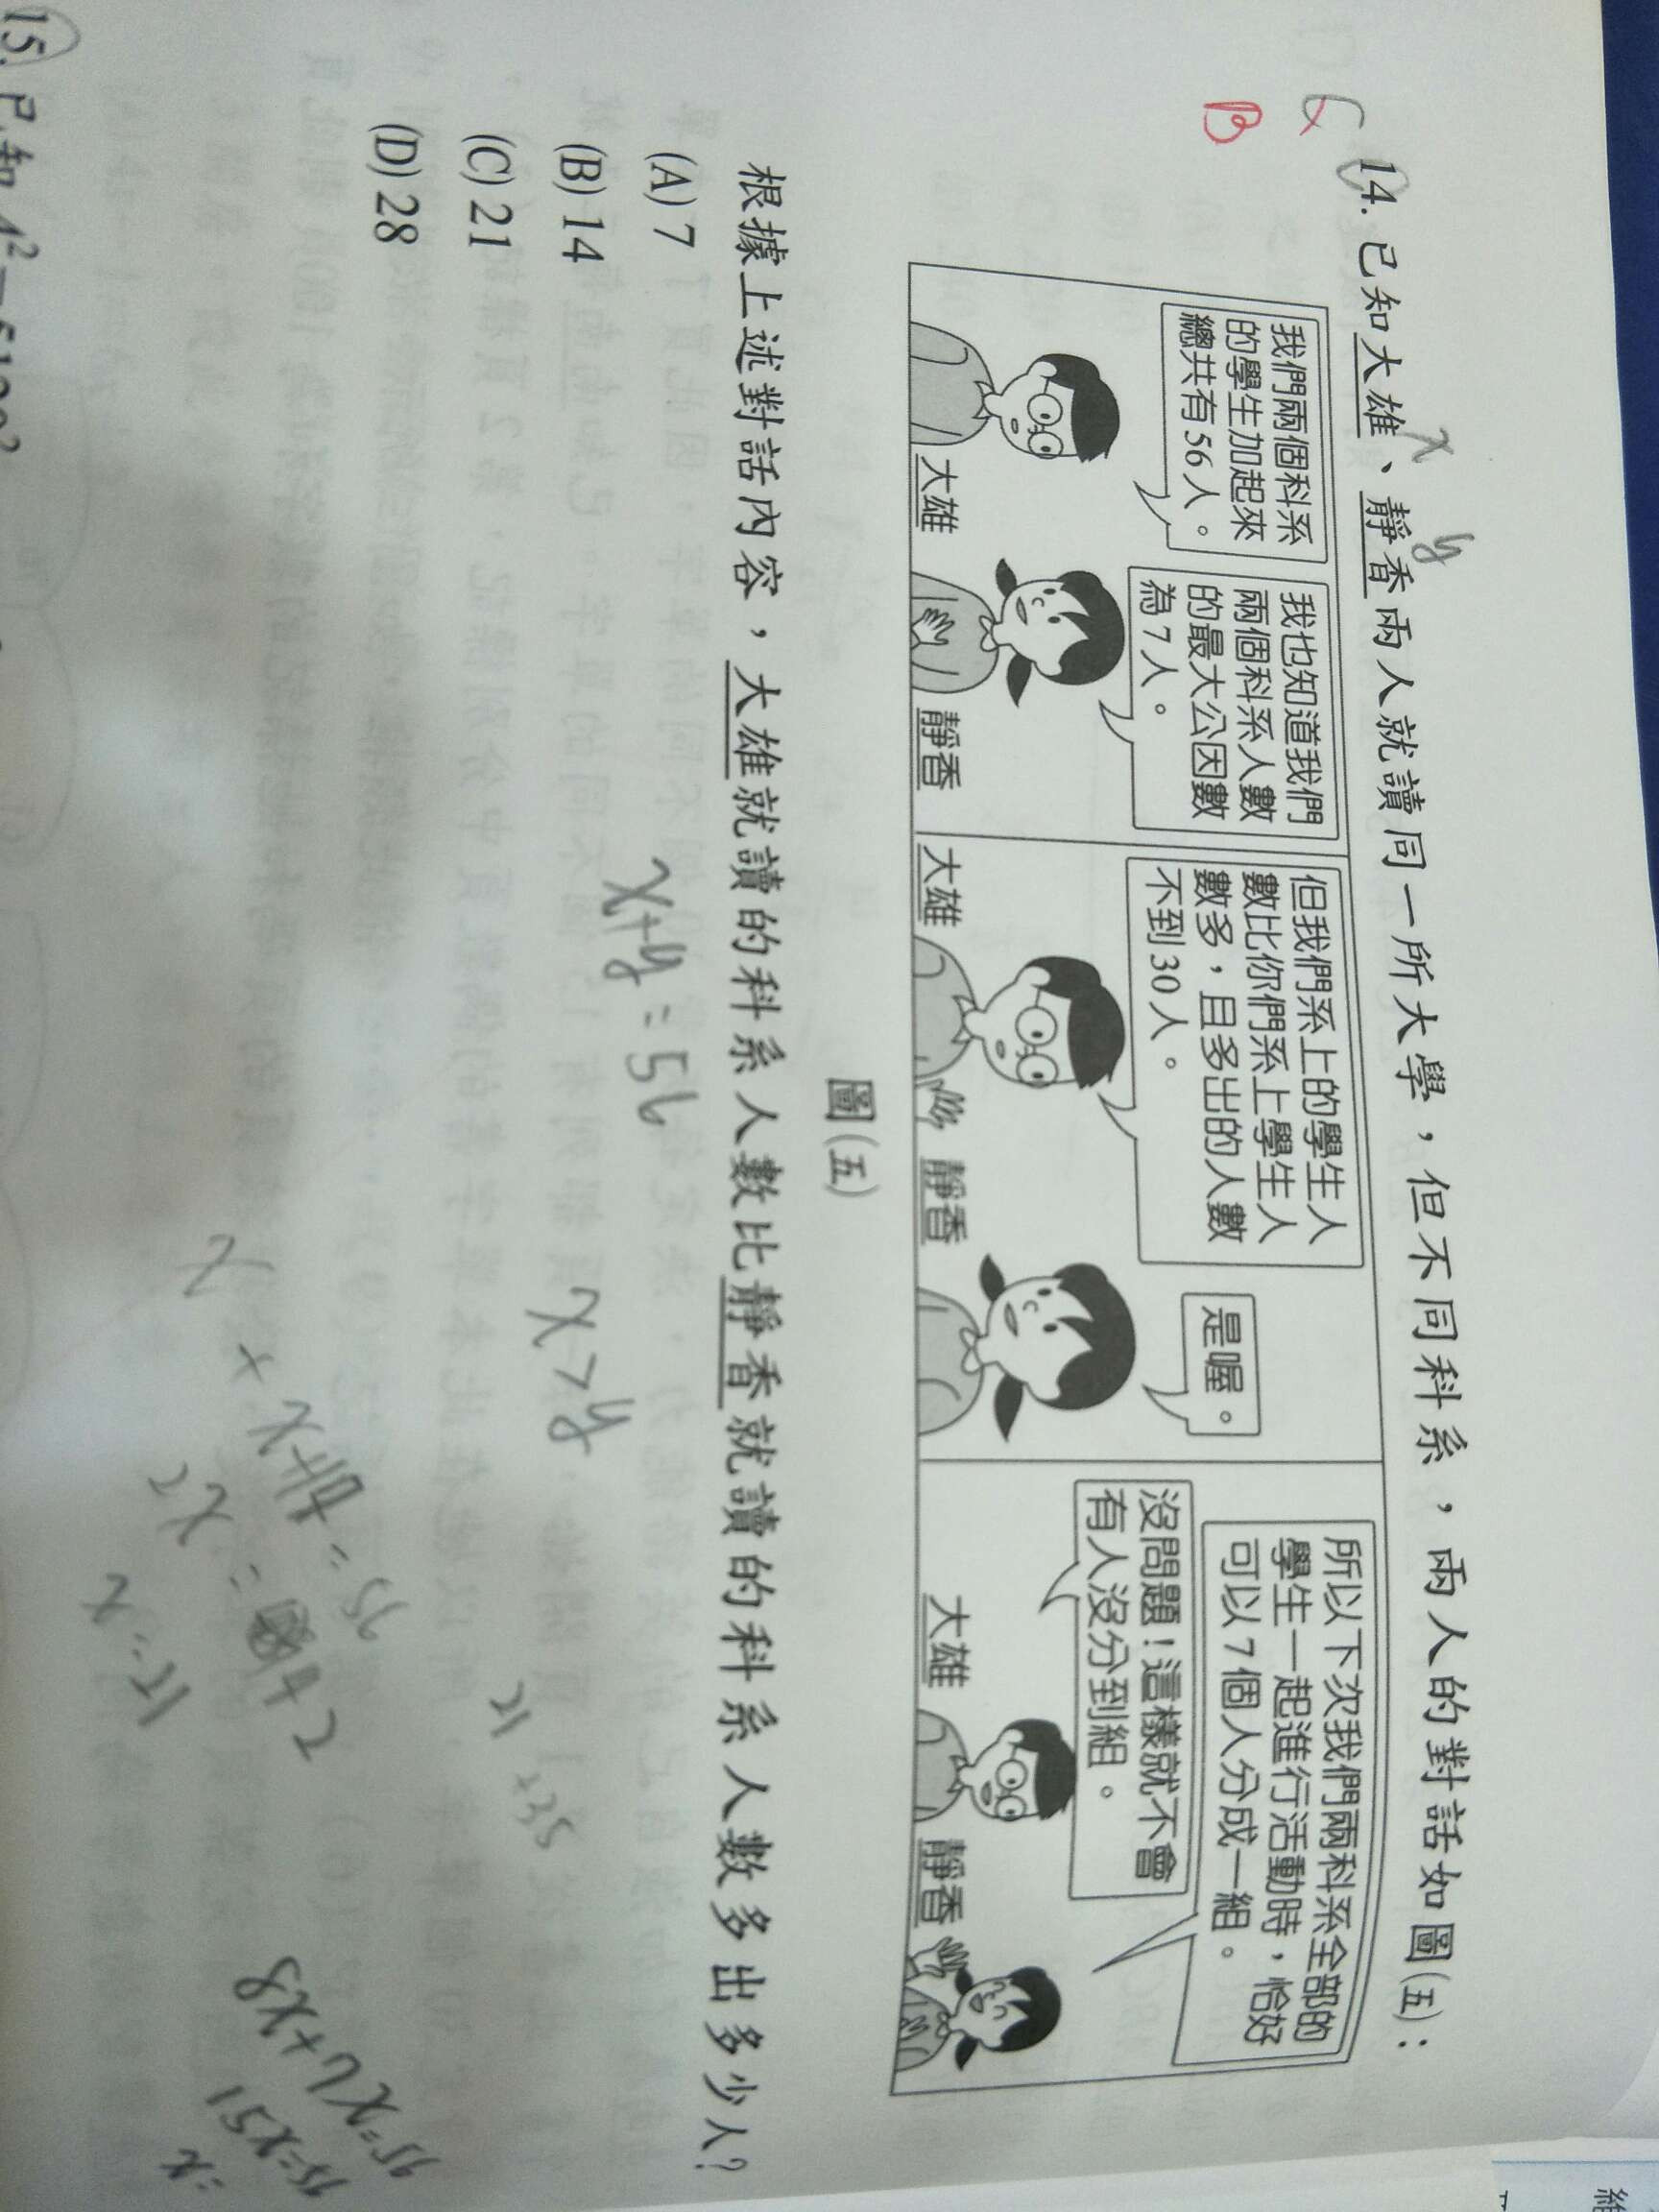 x y
C
B
14. 已知大雄、靜香兩人就讀同一所大學，但不同科系，兩人的對話如圖(五)：
我們兩個科系
的學生加起來
總共有56人。
大雄
我也知道我們
兩個科系人數
的最大公因數
為7人。
靜香
但我們系上的學生人
數比你們系上學生人
數多，且多出的人數
不到30人。
大雄
是喔。
靜香
所以下次我們兩科系全部的
學生一起進行活動時，恰好
可以7個人分成一組。
沒問題！這樣就不會
有人沒分到組。
大雄
靜香
圖(五)
根據上述對話內容，大雄就讀的科系人數比靜香就讀的科系人數多出多少人？
(A) 7
(B) 14
(C) 21
(D) 28
x+y=56
x>y
21 +35
15. 已知